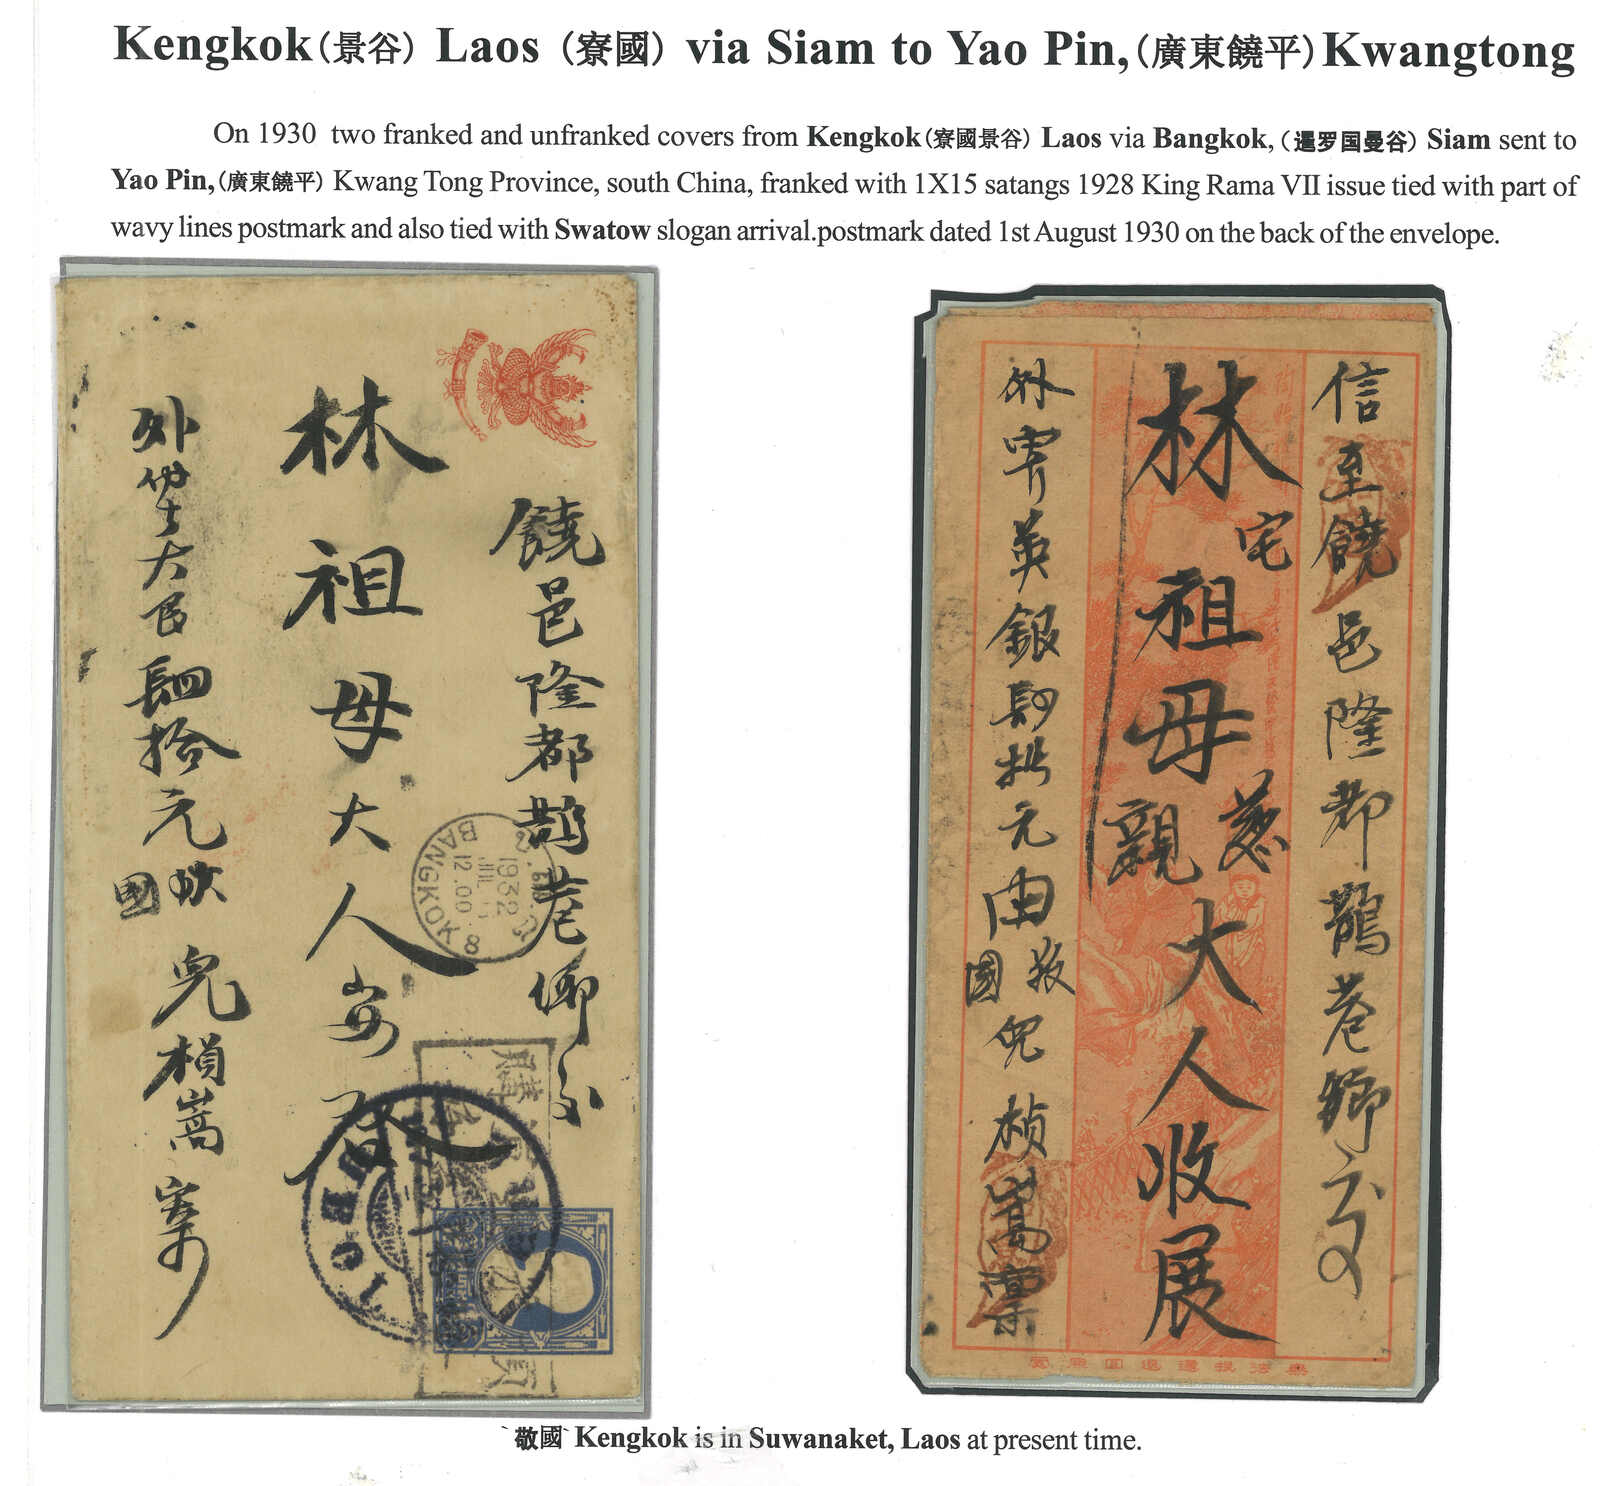 Kengkok(景谷) Laos (寮國) via Siam to Yao Pin,(廣東饒平)Kwangtong
On 1930 two franked and unfranked covers from Kengkok(寮國景谷) Laos via Bangkok, (暹罗国曼谷) Siam sent to
Yao Pin,(廣東饒平) Kwang Tong Province, south China, franked with 1X15 satangs 1928 King Rama VII issue tied with part of
wavy lines postmark and also tied with Swatow slogan arrival.postmark dated 1st August 1930 on the back of the envelope.
饒邑隆都鵲巷鄉交
林祖母大人安
外付大艮肆拾元
國
兒楨嵩寄
BANGKOK 8
12.00
1932
信至饒邑隆都鵲巷鄉交
林宅祖母慈親大人收展
外寄英銀肆拾元由
國
兒楨嵩稟
`敬國` Kengkok is in Suwanaket, Laos at present time.